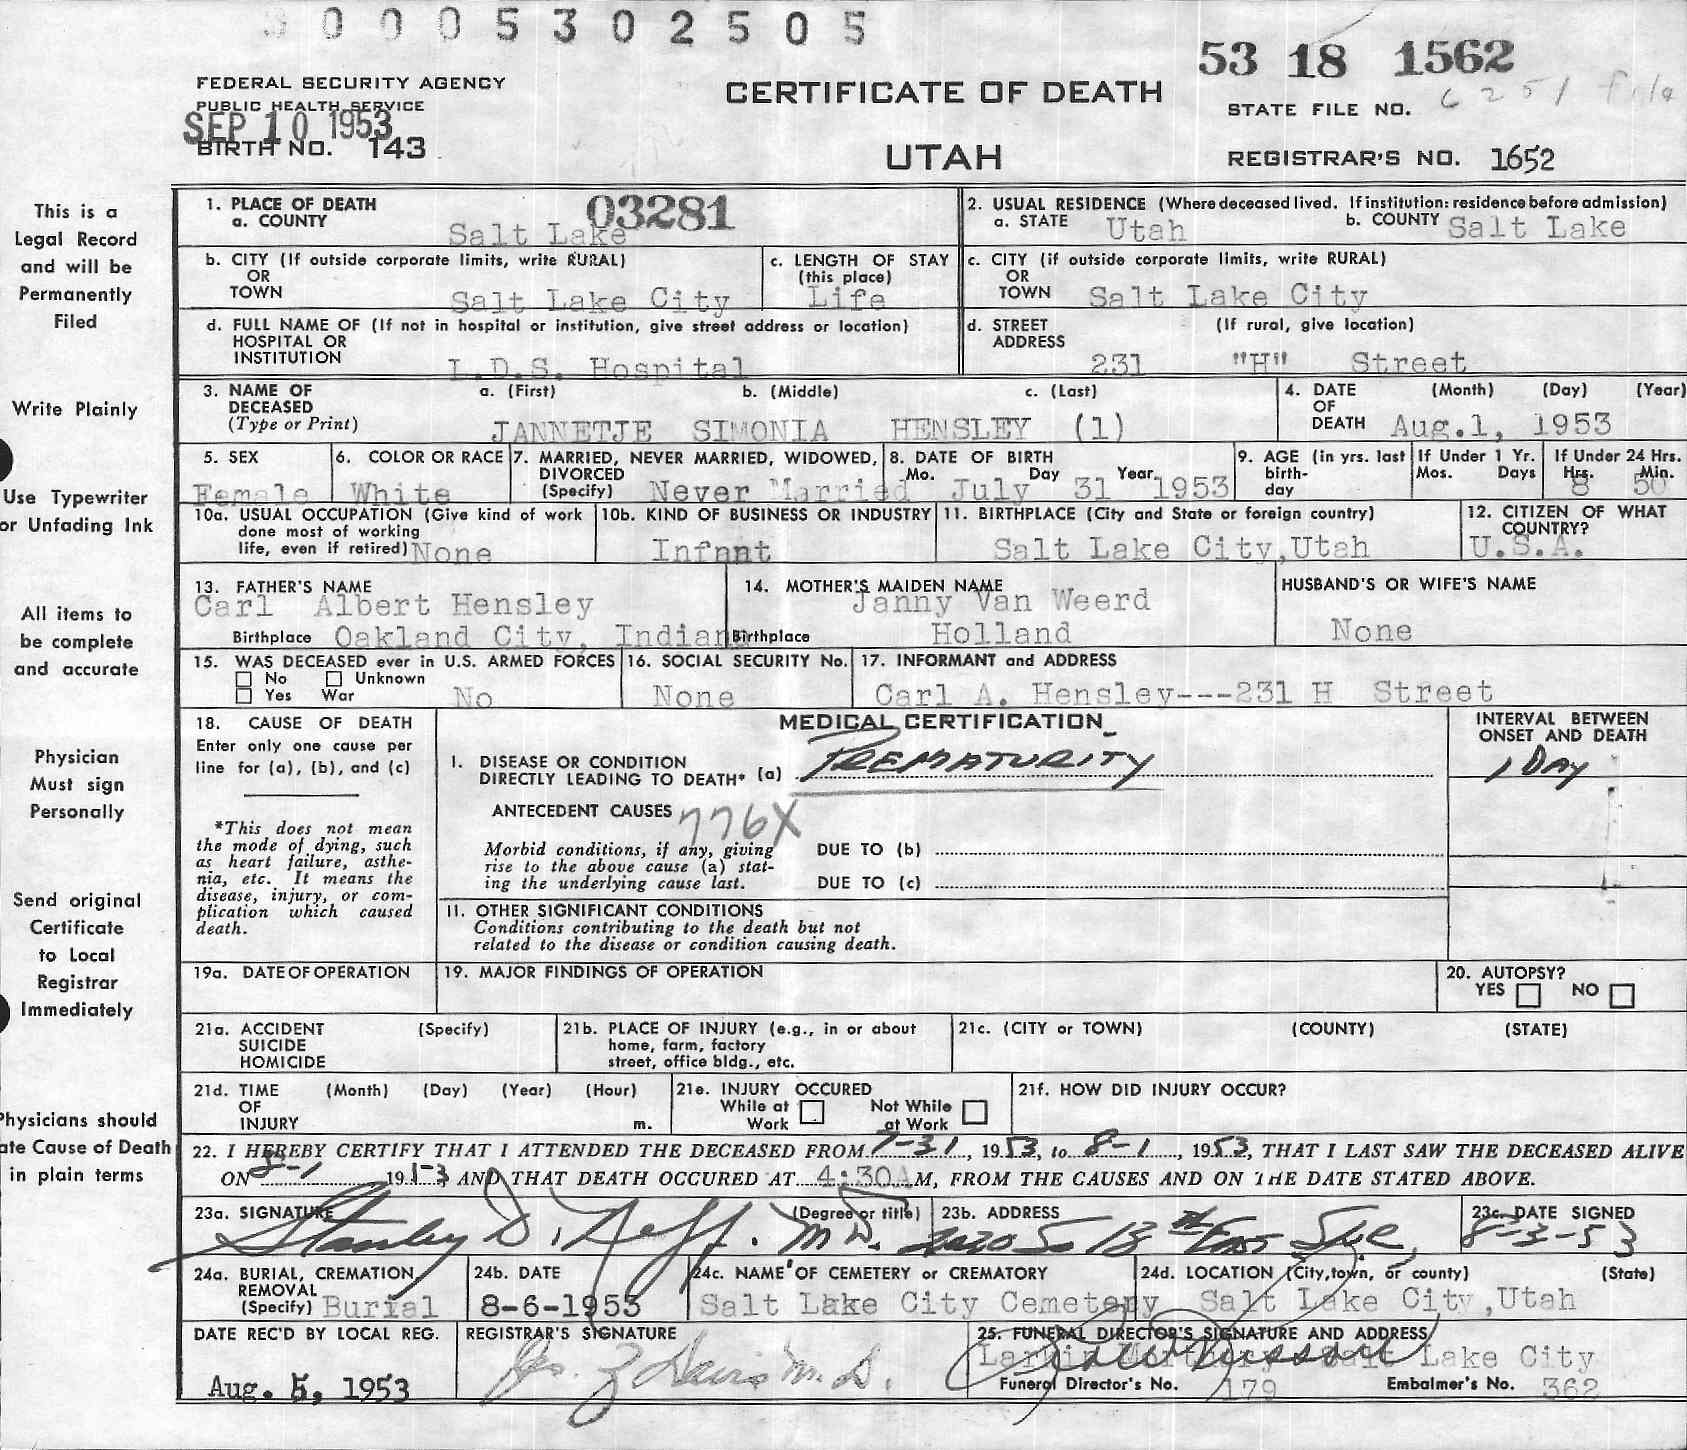 0005302505
53 18 1562
FEDERAL SECURITY AGENCY
PUBLIC HEALTH SERVICE
CERTIFICATE OF DEATH
STATE FILE NO. 6251 file
SEP 10 1953
BIRTH NO. 143
UTAH
REGISTRAR'S NO. 1652
This is a
Legal Record
and will be
Permanently
Filed
1. PLACE OF DEATH
a. COUNTY
03281
Salt Lake
2. USUAL RESIDENCE (Where deceased lived. If institution: residence before admission)
a. STATE Utah b. COUNTY Salt Lake
b. CITY (If outside corporate limits, write RURAL)
OR
TOWN Salt Lake City
c. LENGTH OF STAY
(this place)
Life
c. CITY (if outside corporate limits, write RURAL)
OR
TOWN Salt Lake City
d. FULL NAME OF (If not in hospital or institution, give street address or location)
HOSPITAL OR
INSTITUTION L.D.S. Hospital
d. STREET (If rural, give location)
ADDRESS
231 "H" Street
Write Plainly
3. NAME OF a. (First) b. (Middle) c. (Last)
DECEASED
(Type or Print) JANNETJE SIMONIA HENSLEY (1)
4. DATE (Month) (Day) (Year)
OF
DEATH Aug.1, 1953
Use Typewriter
or Unfading Ink
5. SEX
Female
6. COLOR OR RACE
White
7. MARRIED, NEVER MARRIED, WIDOWED,
DIVORCED
(Specify) Never Married
8. DATE OF BIRTH
Mo. Day Year
July 31 1953
9. AGE (in yrs. last
birth-
day
If Under 1 Yr.
Mos. Days
If Under 24 Hrs.
Hrs. Min.
8 50
10a. USUAL OCCUPATION (Give kind of work
done most of working
life, even if retired) None
10b. KIND OF BUSINESS OR INDUSTRY
Infant
11. BIRTHPLACE (City and State or foreign country)
Salt Lake City,Utah
12. CITIZEN OF WHAT
COUNTRY?
U.S.A.
All items to
be complete
and accurate
13. FATHER'S NAME
Carl Albert Hensley
Birthplace Oakland City, Indiana
14. MOTHER'S MAIDEN NAME
Janny Van Weerd
Birthplace Holland
HUSBAND'S OR WIFE'S NAME
None
15. WAS DECEASED ever in U.S. ARMED FORCES
No Unknown
Yes War No
16. SOCIAL SECURITY No.
None
17. INFORMANT and ADDRESS
Carl A. Hensley---231 H Street
Physician
Must sign
Personally
18. CAUSE OF DEATH
Enter only one cause per
line for (a), (b), and (c)
*This does not mean
the mode of dying, such
as heart failure, asthe-
nia, etc. It means the
disease, injury, or com-
plication which caused
death.
MEDICAL CERTIFICATION
INTERVAL BETWEEN
ONSET AND DEATH
I. DISEASE OR CONDITION
DIRECTLY LEADING TO DEATH* (a) PREMATURITY
1 DAY
ANTECEDENT CAUSES 776X
Morbid conditions, if any, giving
rise to the above cause (a) stat-
ing the underlying cause last.
DUE TO (b)
DUE TO (c)
II. OTHER SIGNIFICANT CONDITIONS
Conditions contributing to the death but not
related to the disease or condition causing death.
Send original
Certificate
to Local
Registrar
Immediately
19a. DATE OF OPERATION
19. MAJOR FINDINGS OF OPERATION
20. AUTOPSY?
YES NO
21a. ACCIDENT (Specify)
SUICIDE
HOMICIDE
21b. PLACE OF INJURY (e.g., in or about
home, farm, factory
street, office bldg., etc.
21c. (CITY or TOWN) (COUNTY) (STATE)
21d. TIME (Month) (Day) (Year) (Hour)
OF
INJURY m.
21e. INJURY OCCURED
While at Work Not While at Work
21f. HOW DID INJURY OCCUR?
Physicians should
ate Cause of Death
in plain terms
22. I HEREBY CERTIFY THAT I ATTENDED THE DECEASED FROM 7-31, 1953, to 8-1, 1953, THAT I LAST SAW THE DECEASED ALIVE
ON 8-1 1953 AND THAT DEATH OCCURED AT 4:30AM, FROM THE CAUSES AND ON THE DATE STATED ABOVE.
23a. SIGNATURE (Degree or title)
Stanley D. Neff. M.D.
23b. ADDRESS
2020 So 13th East SLC,
23c. DATE SIGNED
8-3-53
24a. BURIAL, CREMATION,
REMOVAL
(Specify) Burial
24b. DATE
8-6-1953
24c. NAME OF CEMETERY or CREMATORY
Salt Lake City Cemetery
24d. LOCATION (City, town, or county) (State)
Salt Lake City,Utah
DATE REC'D BY LOCAL REG.
Aug. 5, 1953
REGISTRAR'S SIGNATURE
Davis M.D.
25. FUNERAL DIRECTOR'S SIGNATURE AND ADDRESS
Larkin Mortuary Salt Lake City
Funeral Director's No. 179 Embalmer's No. 362